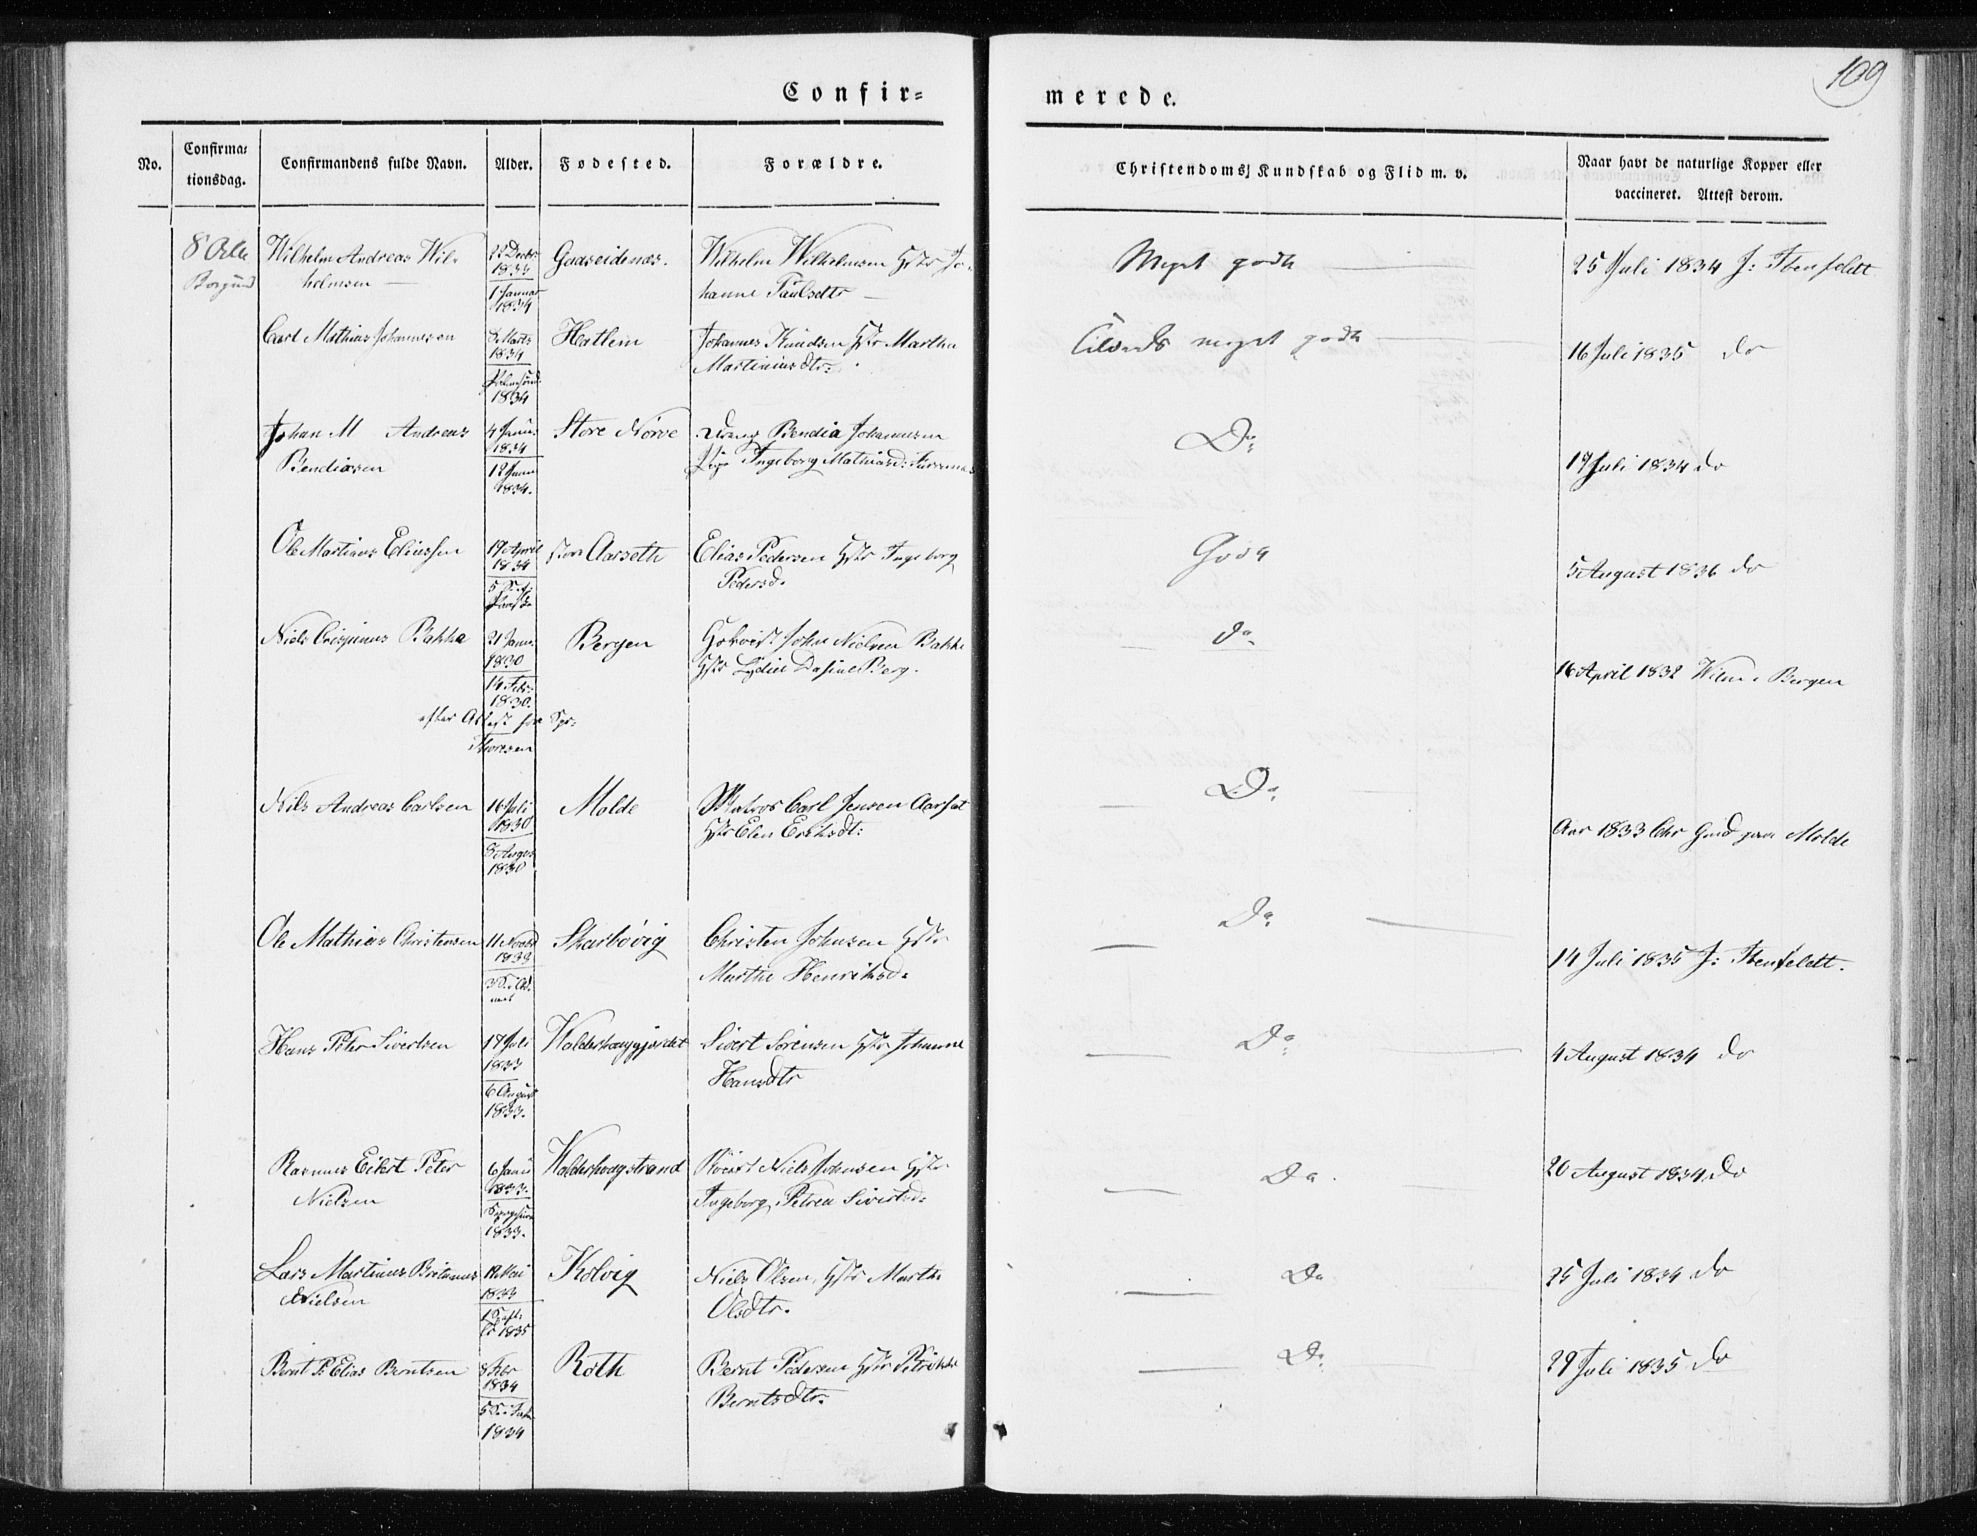 109
Confir=
merede.
No.
Confirma=
tionsdag.
Confirmandens fulde Navn.
Alder.
Fødested.
Forældre.
Christendoms Kundskab og Flid m. v.
Naar havt de naturlige Kopper eller
vaccineret. Attest derom.
8 Octb
Borgund
Wilhelm Andreas Wil-
helmsen
22 Decbr
1833
1 Januar
1834
Gaaseidenæs.
Wilhelm Wilhelmsen Hstr Jo-
hanne Paulsdtr
Meget godt
25 Juli 1834 J:
Carl Mathias Johannesen
8 Marts
1834
Palmesønd
1834
Hatlem
Johannes Knudsen Hstr Martha
Martiniusdtr.
Tilsreds meget godt
16 Juli 1835 do
Johan M Andreas
Bendiasen
4 Janu.
1834
12 Janu
1834.
Store Nørve
Bendia Johannesen
Pige Ingeborg Mathiasd:
Do
17 Juli 1834 do
Ole Martinus Eliassen
17 April
1834
5 S. e.
Paaske
Aarseth
Elias Pedersen Hstr Ingeborg
Pedersd.
Godt
5 August 1836 do
Niels Crispinus Bakke
21 Janu.
1830
14 Febr:
1830.
efter Attest fra Spr:
Thoresen
Bergen
John Nielsen Bakke
Hstr Lydia Berg.
do
16 April 1832 Bergen
Nils Andreas Carlsen
16 Juli
1830
8 Augst
1830
Molde
Matros Carl Jensen Aarset
Hstr Elen Eriksdt:
Do
Aar 1833 Chr paa Molde
Ole Mathias Christensen
11 Novbr
1833
3 S. i Ad-
vent
Skarbøvig
Christen Johnsen Hstr
Marthe Henriksd:
Do
14 Juli 1835 J:
Hans Peter Sivertsen
17 Juli
1833
6 August
1833.
Walderhouggjerdet
Sivert Sørensen Hstr Johanne
Hansdtr
Do
4 August 1834 do
Rasmus Eikrt Peter
Nielsen
6 Janu
1833.
1833.
Walderhougstrand
Niels Johnsen Hstr
Ingeborg Petrea Sivertsd:
Do.
20 August 1834 do
Lars Martinus
Nielsen
Mai
1833
1835
Kolvig
Niels Olsen, Hstr Marthe
Olsdtr.
Do
25 Juli 1834 do
Bernt P. Elias Berntsen
8 Febr
1834
5 S.
1834
Roth
Bernt Pedersen Hstr Petrikke
Berntsdtr.
Do
29 Juli 1835 do